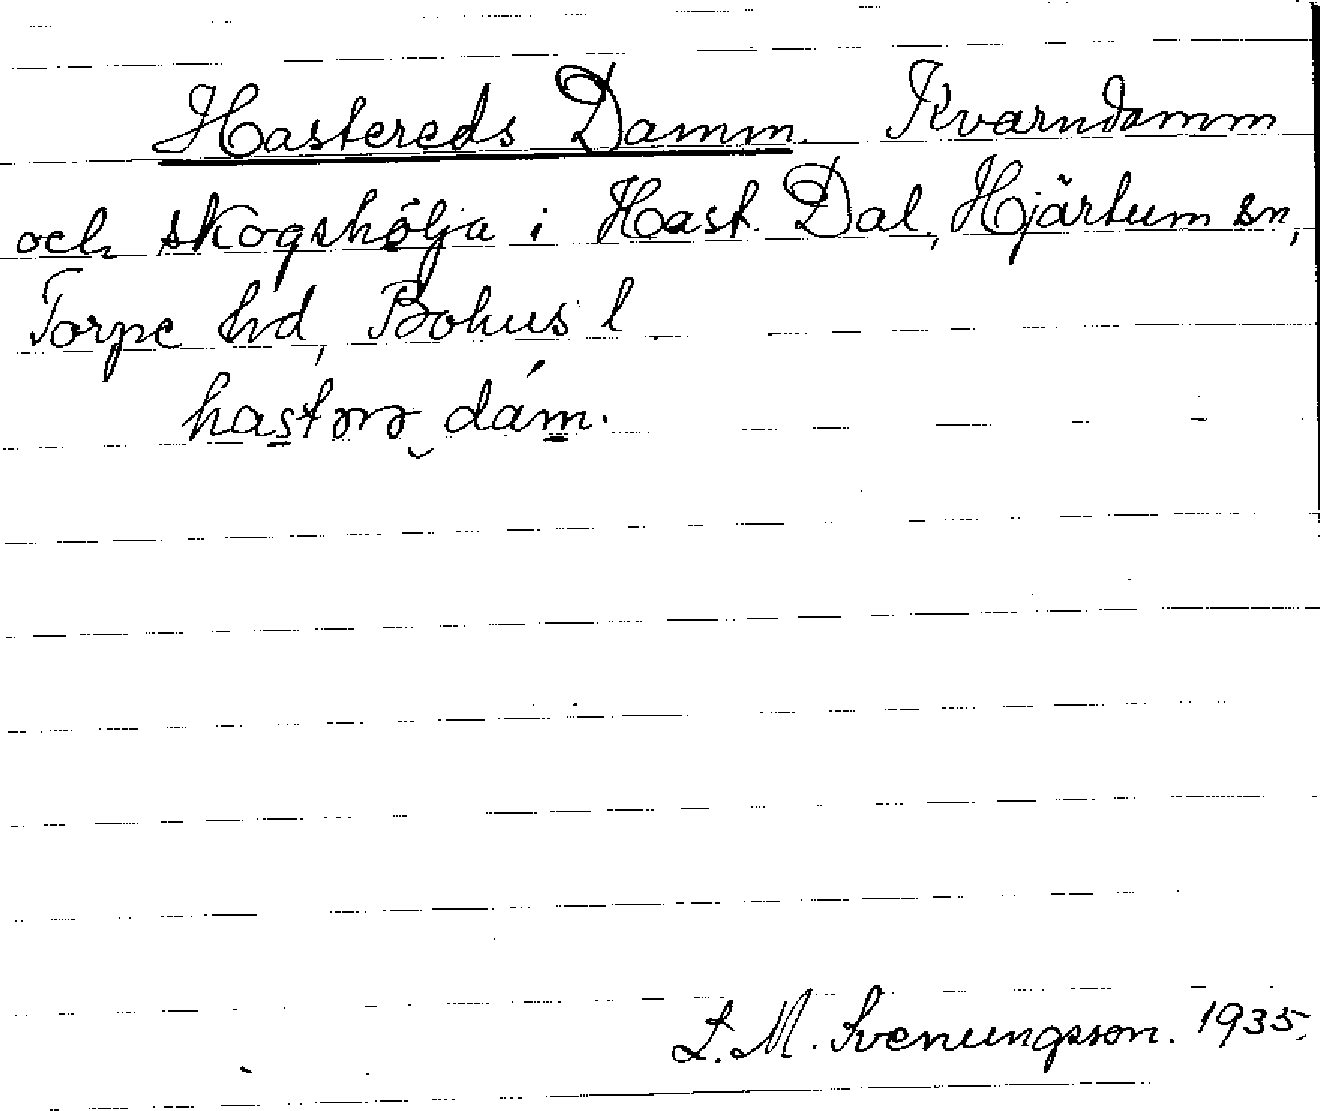 Hastereds Damm. Kvarndamm
och skogshölja i Hast. Dal, Hjärtum sn,
Torpe hd, Bohus l
dám.
L. M. Svenungsson. 1935.